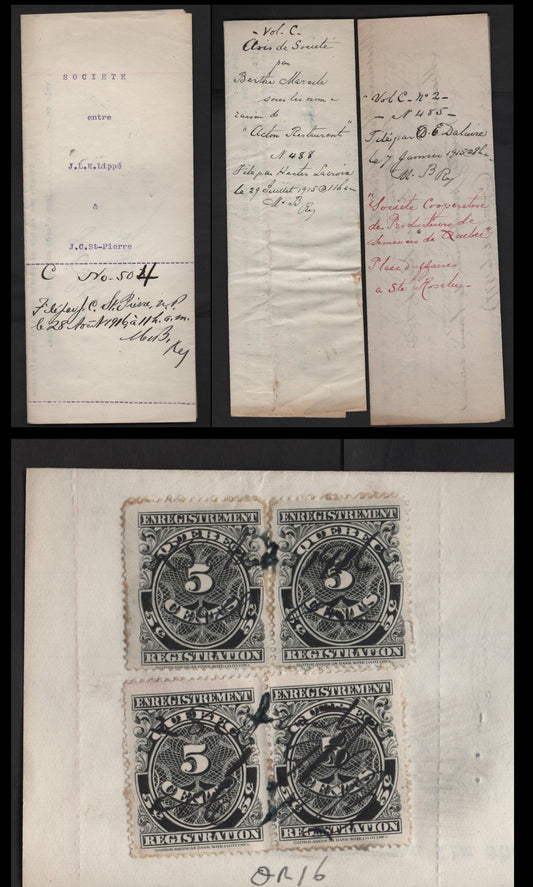 SOCIETE
entre
J.L.E.Lippé
&
J.C.St-Pierre
C No-504
le 28 Août 1916 à 11 h. a.m.
Reg
- Vol. C -
Avis de Société
par
Berthe Marcile
sous les nom &
raison de
"Acton Restaurant"
N. 488
Filé par Hector Lacroix
le 29 Juillet 1915 @ 11h a-
Reg
Vol C - No 2 -
- N 485 -
Filé par D. E. Dalaire
le 7 Janvier 1915 @
Reg
"Société Cooperative
de Producteurs de
Semences de Québec"
Place d'affaires
a Ste Rosalie -
ENREGISTREMENT
QUEBEC
5
CENTS
5c 5c
REGISTRATION
ENREGISTREMENT
QUEBEC
5
CENTS
5c 5c
REGISTRATION
ENREGISTREMENT
QUEBEC
5
CENTS
5c 5c
REGISTRATION
ENREGISTREMENT
QUEBEC
5
CENTS
5c 5c
REGISTRATION
QR16